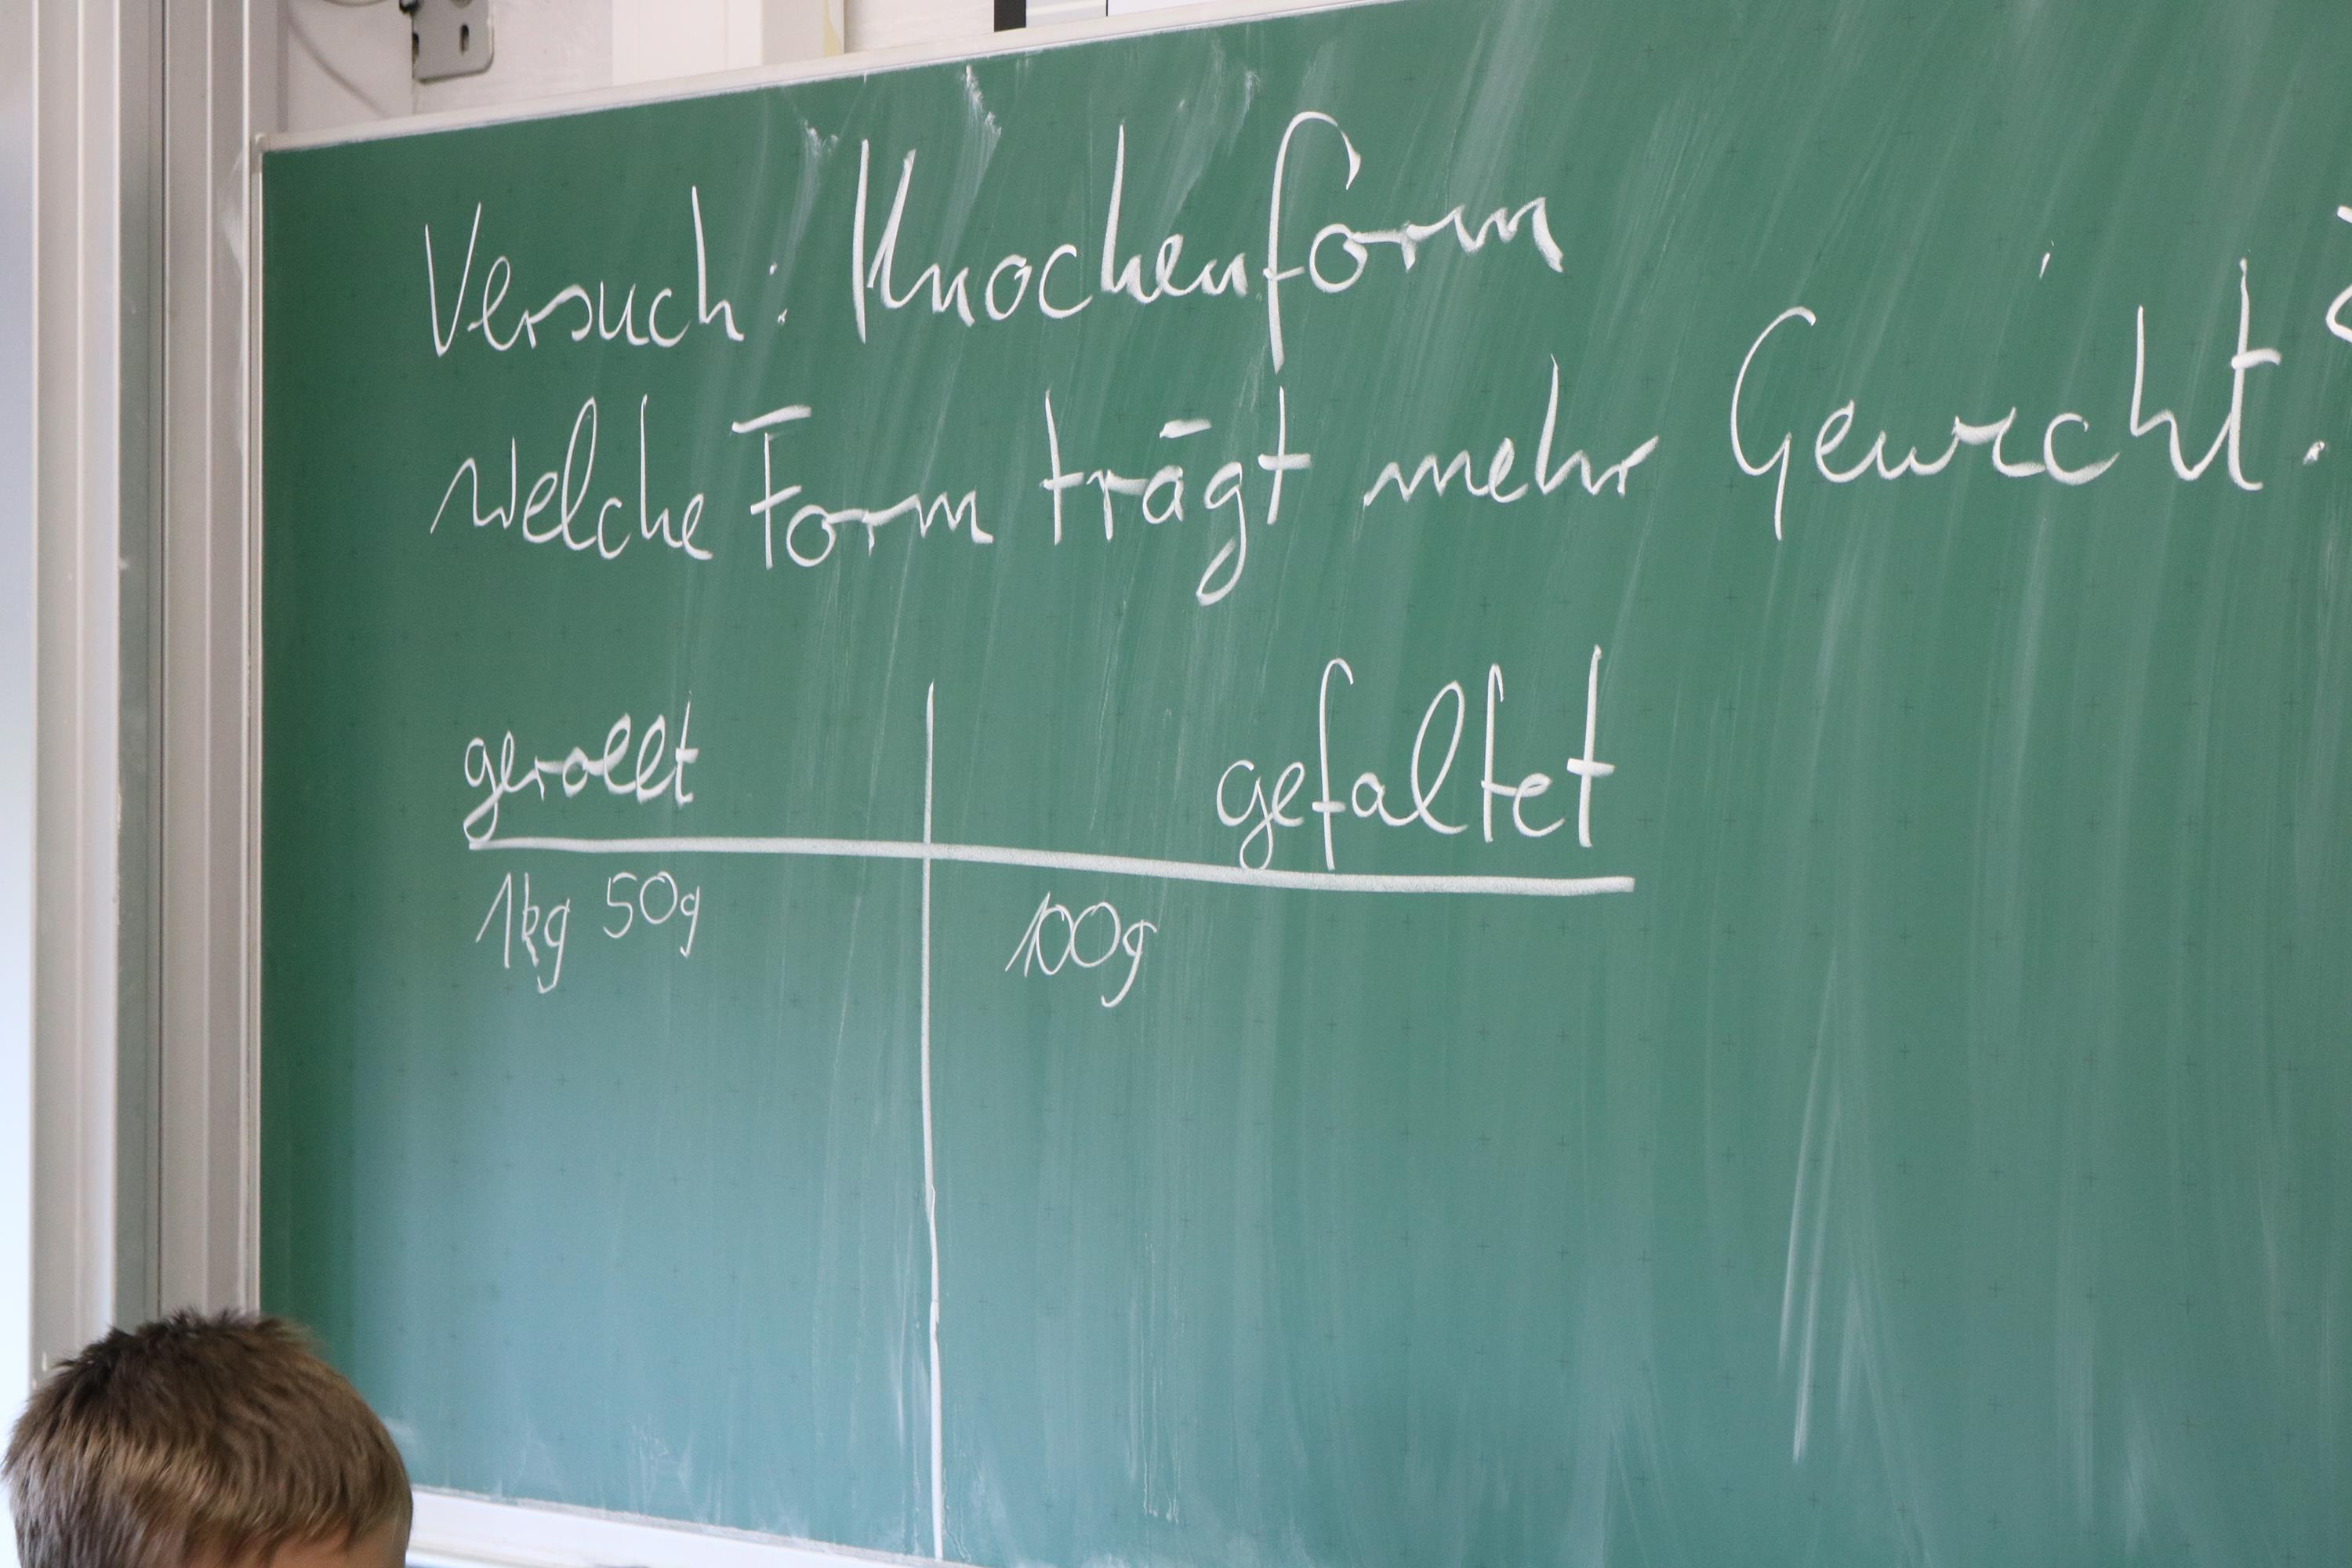 Versuch: Knochenform
Welche Form trägt mehr Gewicht?
gerollt gefaltet
1kg 50g 100g